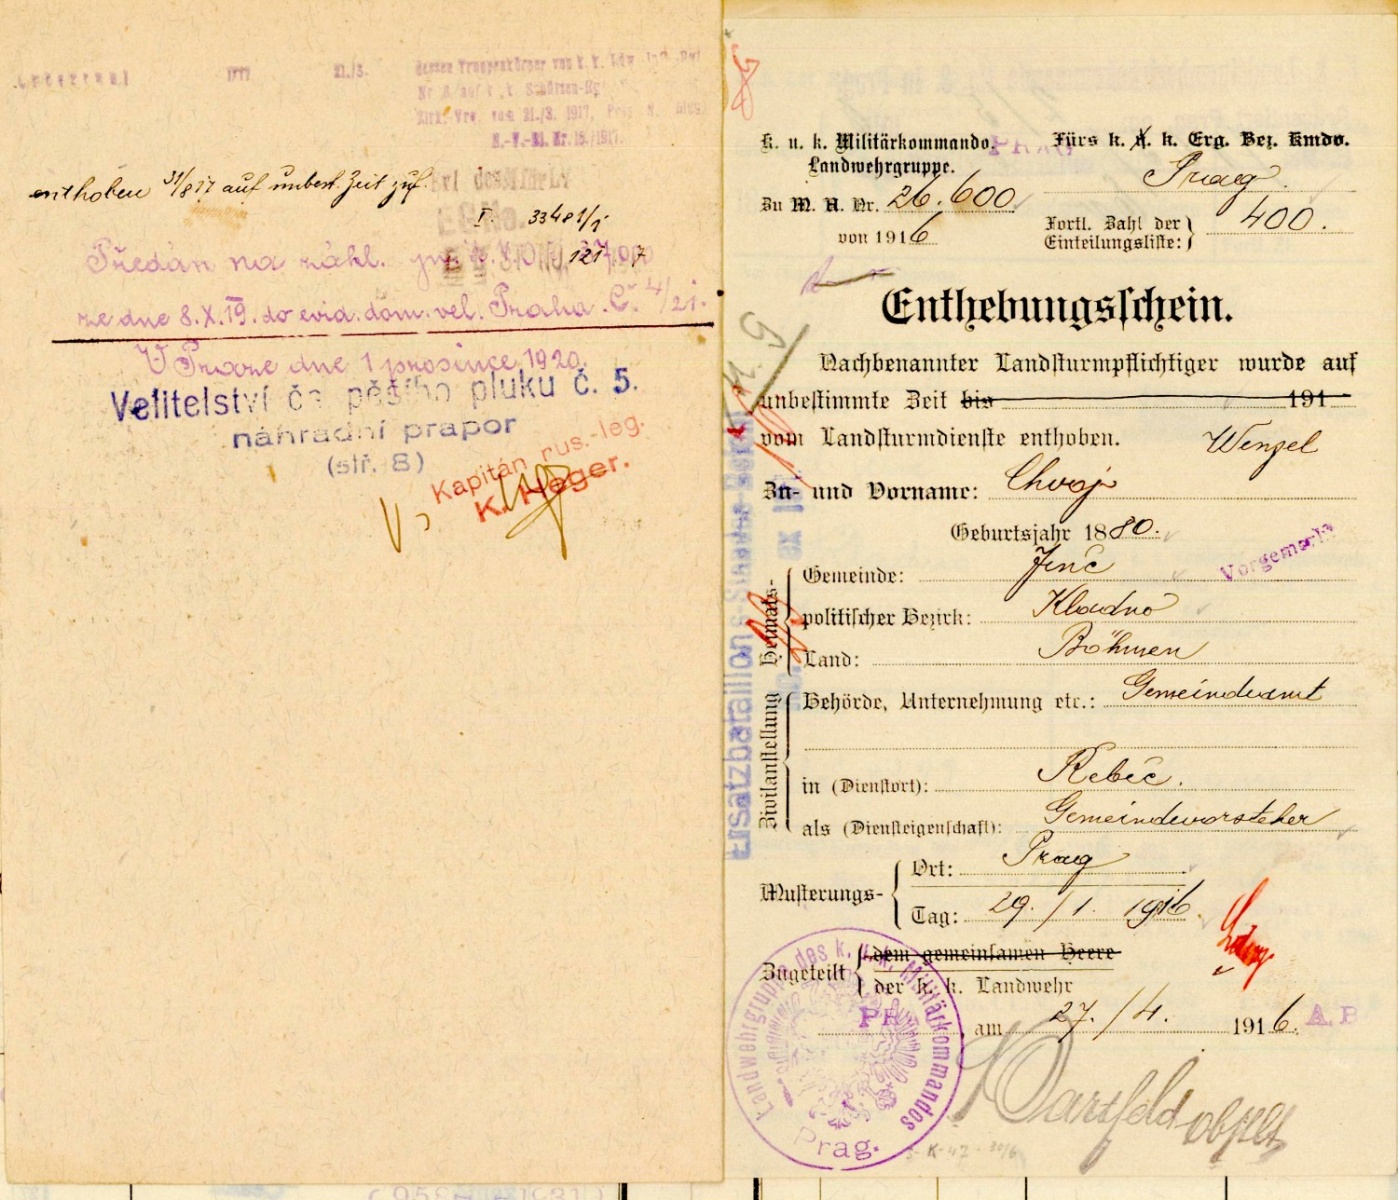 1917 21./3. dessen Truppenkörper von k. k. Ldw
Nr. 8 auf k. k. Schützen-Rgt
Zirk.-Vrg. vom 21./3. 1917, Präs. N.
N.-V.-Bl. Nr. 15/1917.
enthoben 31/8 17 auf unbest. Zeit zuf.
Erl des MfLV
P. 33481/1
121 7
Předán na zákl.
ze dne 8.X.19. do evid. dom. vel. Praha. Č. 4/21.
V Praze dne 1 prosince 1920.
Velitelství čs pěšího pluku č. 5.
náhradní prapor
(stř. 8)
Kapitán rus.-leg.
K. Heger.
K. u. k. Militärkommando. PRAG
Landwehrgruppe.
Zu M. A. Nr. 26.600
von 1916
Fürs k. u. k. Erg. Bez. Kmdo.
Prag.
Fortl. Zahl der
Einteilungsliste: 400.
Enthebungsschein.
Nachbenannter Landsturmpflichtiger wurde auf
unbestimmte Zeit bis 191
vom Landsturmdienste enthoben.
Wenzel
Zu- und Vorname: Chvoj
Geburtsjahr 1880.
Vorgemerkt
Heimats-
Gemeinde: Jenč
politischer Bezirk: Kladno
Land: Böhmen
Zivilanstellung
Behörde, Unternehmung etc.: Gemeindeamt
in (Dienstort): Řebéč.
als (Diensteigenschaft): Gemeindevorsteher
Musterungs-
Ort: Prag
Tag: 29. / 1. 1916
Zugeteilt
dem gemeinsamen Heere
der k. k. Landwehr
PR , am 27. / 4. 1916.
Landwehrgruppe des k. u. k. Militärkommandos
Prag.
Ersatzbataillons